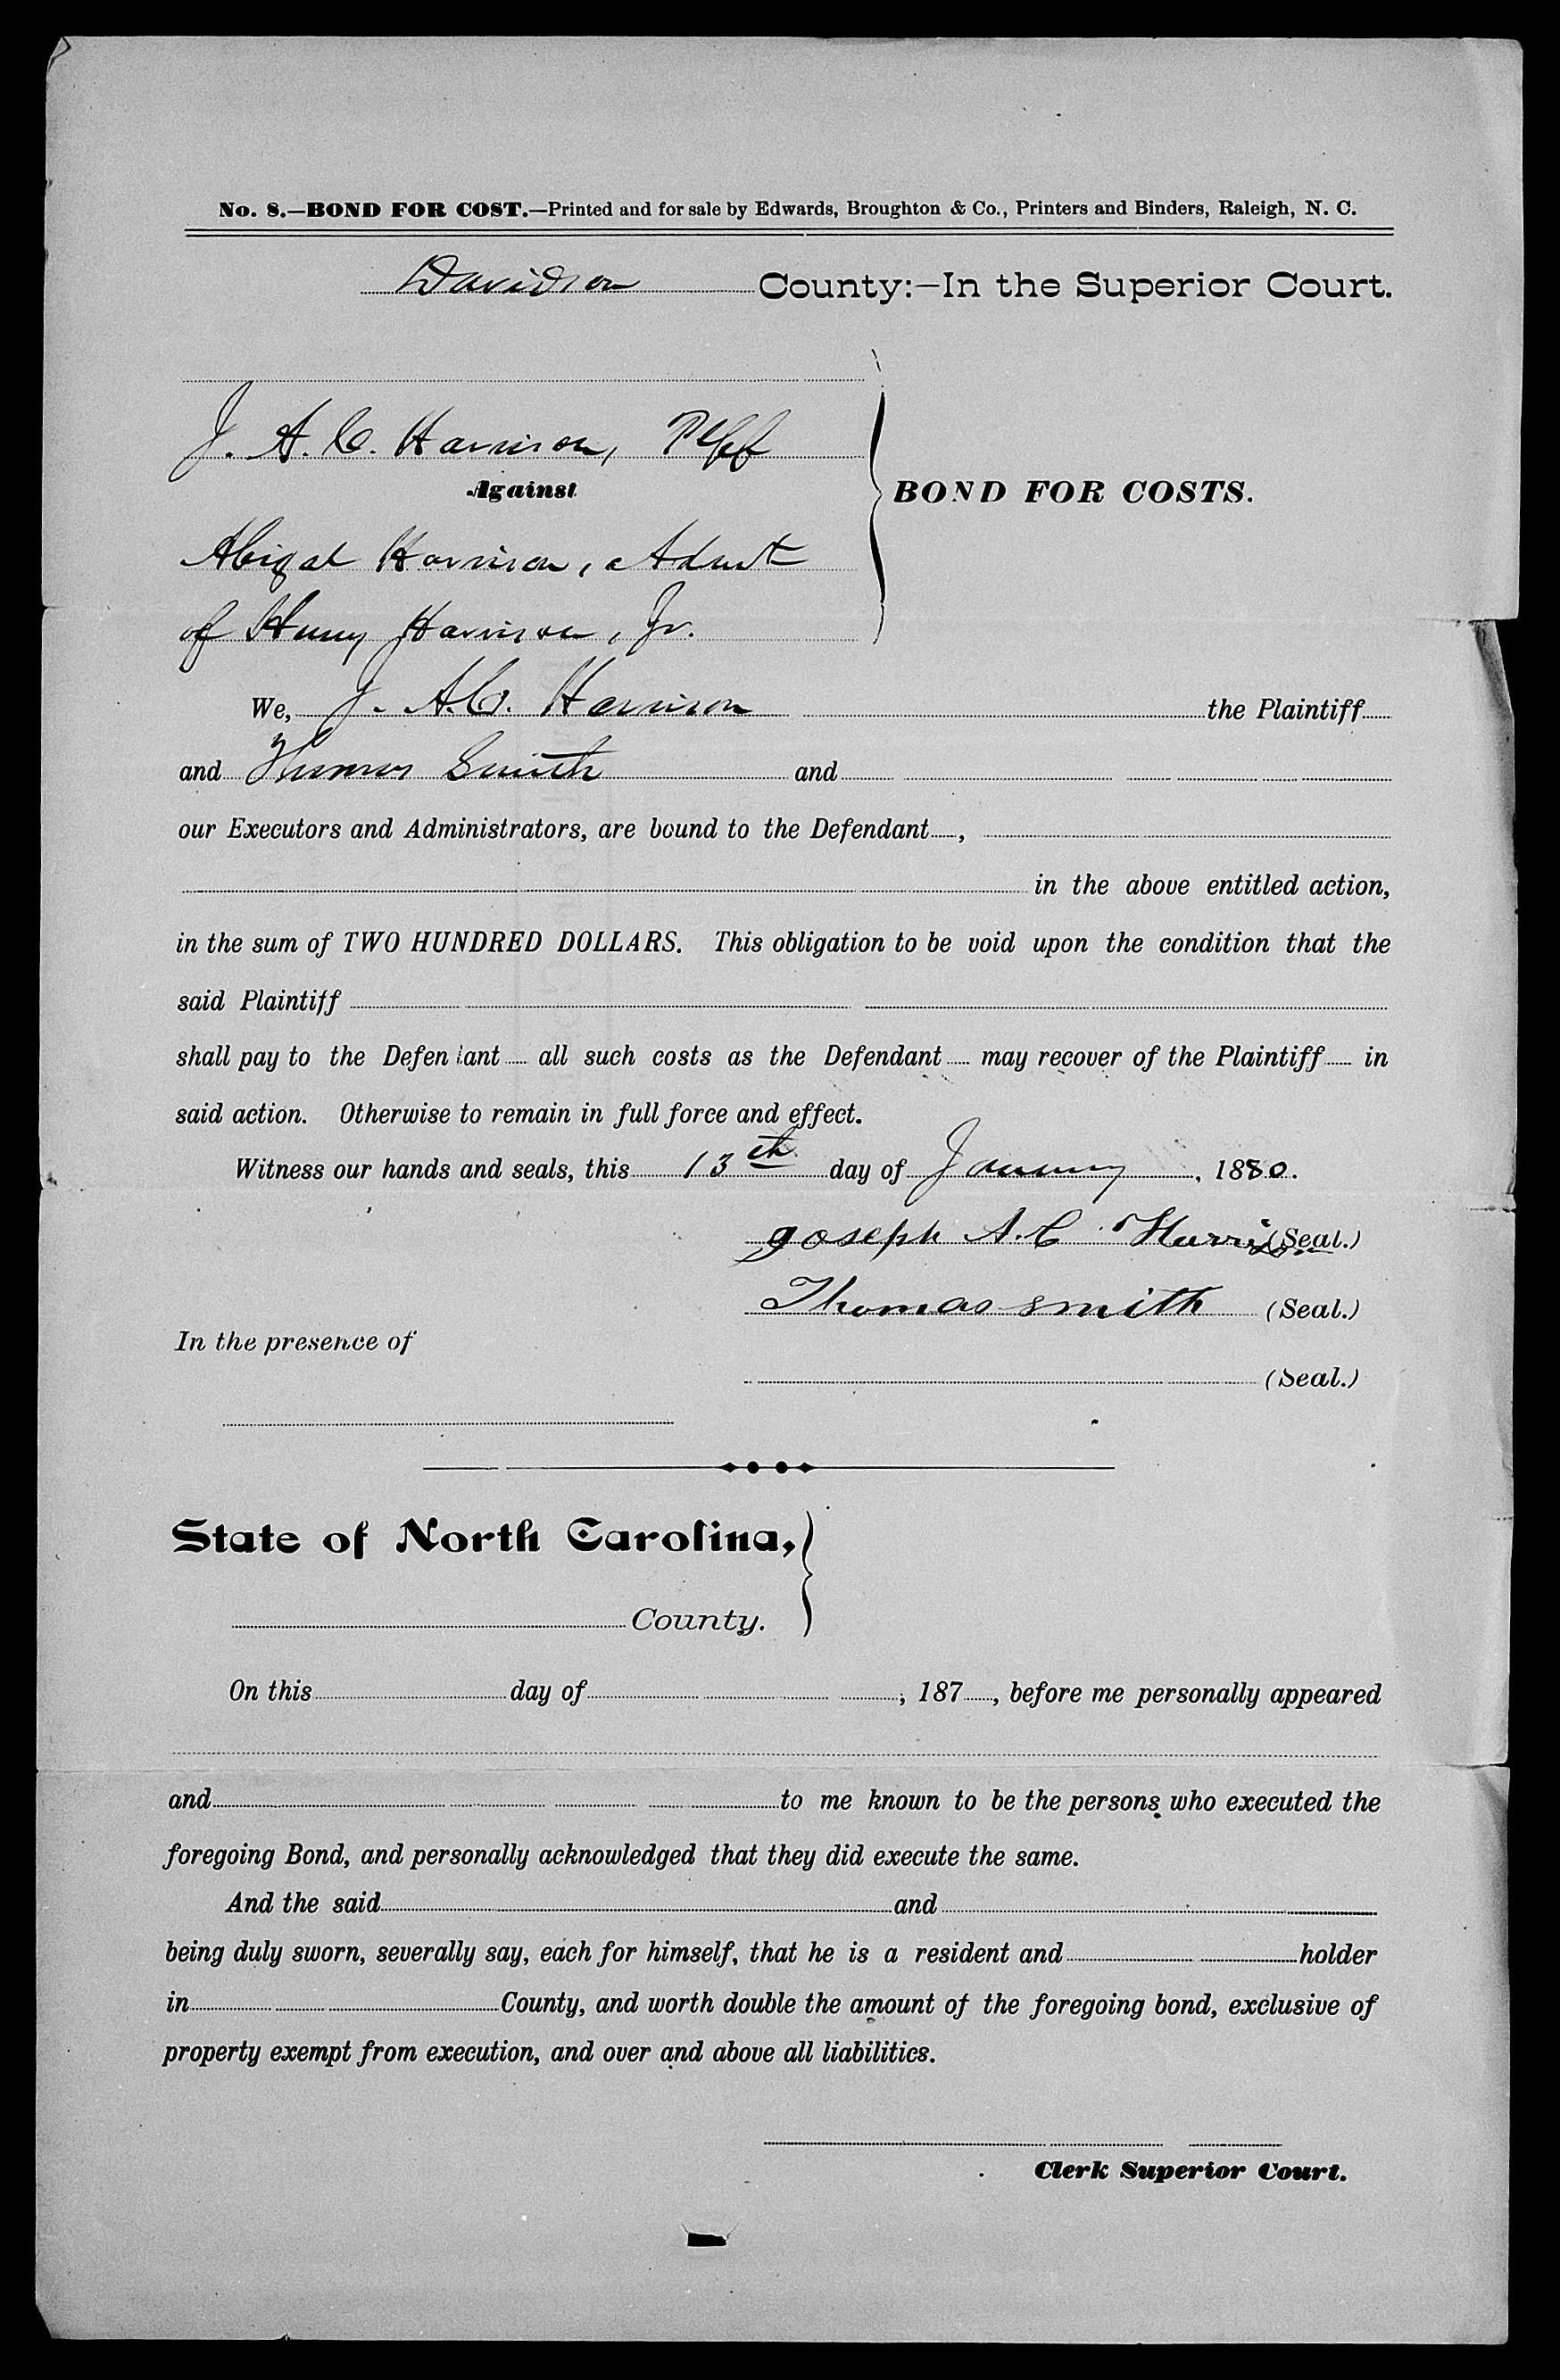 No. 8.—BOND FOR COST.—Printed and for sale by Edwards, Broughton & Co., Printers and Binders, Raleigh, N. C.
Davidson County:—In the Superior Court.
J. A. C. Harrison, Plff
Against
BOND FOR COSTS.
Abigal Harrison, Admt
of Henry Harrison, Jr.
We, J. A. C. Harrison the Plaintiff
and Thomas Smith and
our Executors and Administrators, are bound to the Defendant ,
in the above entitled action,
in the sum of TWO HUNDRED DOLLARS. This obligation to be void upon the condition that the
said Plaintiff
shall pay to the Defendant all such costs as the Defendant may recover of the Plaintiff in
said action. Otherwise to remain in full force and effect.
Witness our hands and seals, this 13th day of January, 1880.
Joseph A. C Harrison (Seal.)
Thomas smith (Seal.)
In the presence of
(Seal.)
State of North Carolina,
County.
On this day of , 187 , before me personally appeared
and to me known to be the persons who executed the
foregoing Bond, and personally acknowledged that they did execute the same.
And the said and
being duly sworn, severally say, each for himself, that he is a resident and holder
in County, and worth double the amount of the foregoing bond, exclusive of
property exempt from execution, and over and above all liabilities.
Clerk Superior Court.